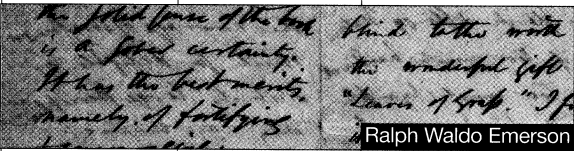 the solid sense of the book
is a sober certainty.
It has the best merits,
namely, of fortifying
blind to the worth
the wonderful gift
"Leaves of Grass." I f
Ralph Waldo Emerson